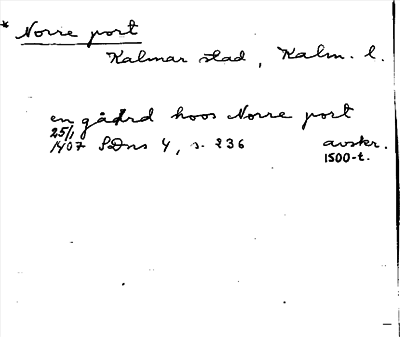 * Norre port
Kalmar stad, Kalm. l.
en gåård hoos Norre port
25/1
1407 SDns 4, s. 236 avskr.
1500-t.